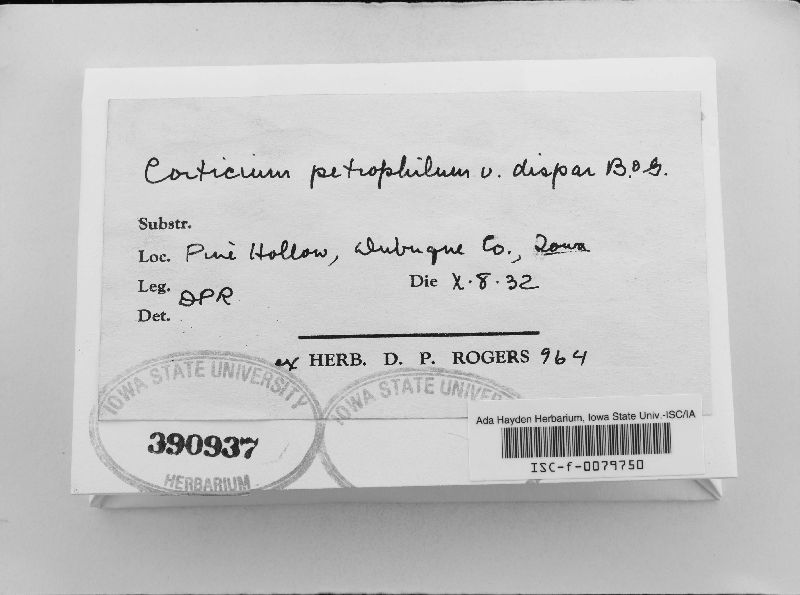 Corticium petrophilum v. dispar B. & G.
Substr.
Loc. Pine Hollow, Dubuque Co., Iowa
Leg. DPR
Die X·8·32
Det.
ex HERB. D. P. ROGERS 964
IOWA STATE UNIVERSITY
390937
HERBARIUM
IOWA STATE UNIVER
Ada Hayden Herbarium, Iowa State Univ.-ISC/IA
ISC-f-0079750